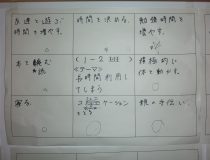 友達と遊ぶ
時間を増やす。
時間を決める。
勉強時間を
増やす。
本を読む
(1-2
<テーマ>
長時間利用して
しまう
積極的に
体を動かす。
寝る。
コ ケーション
親の手伝い